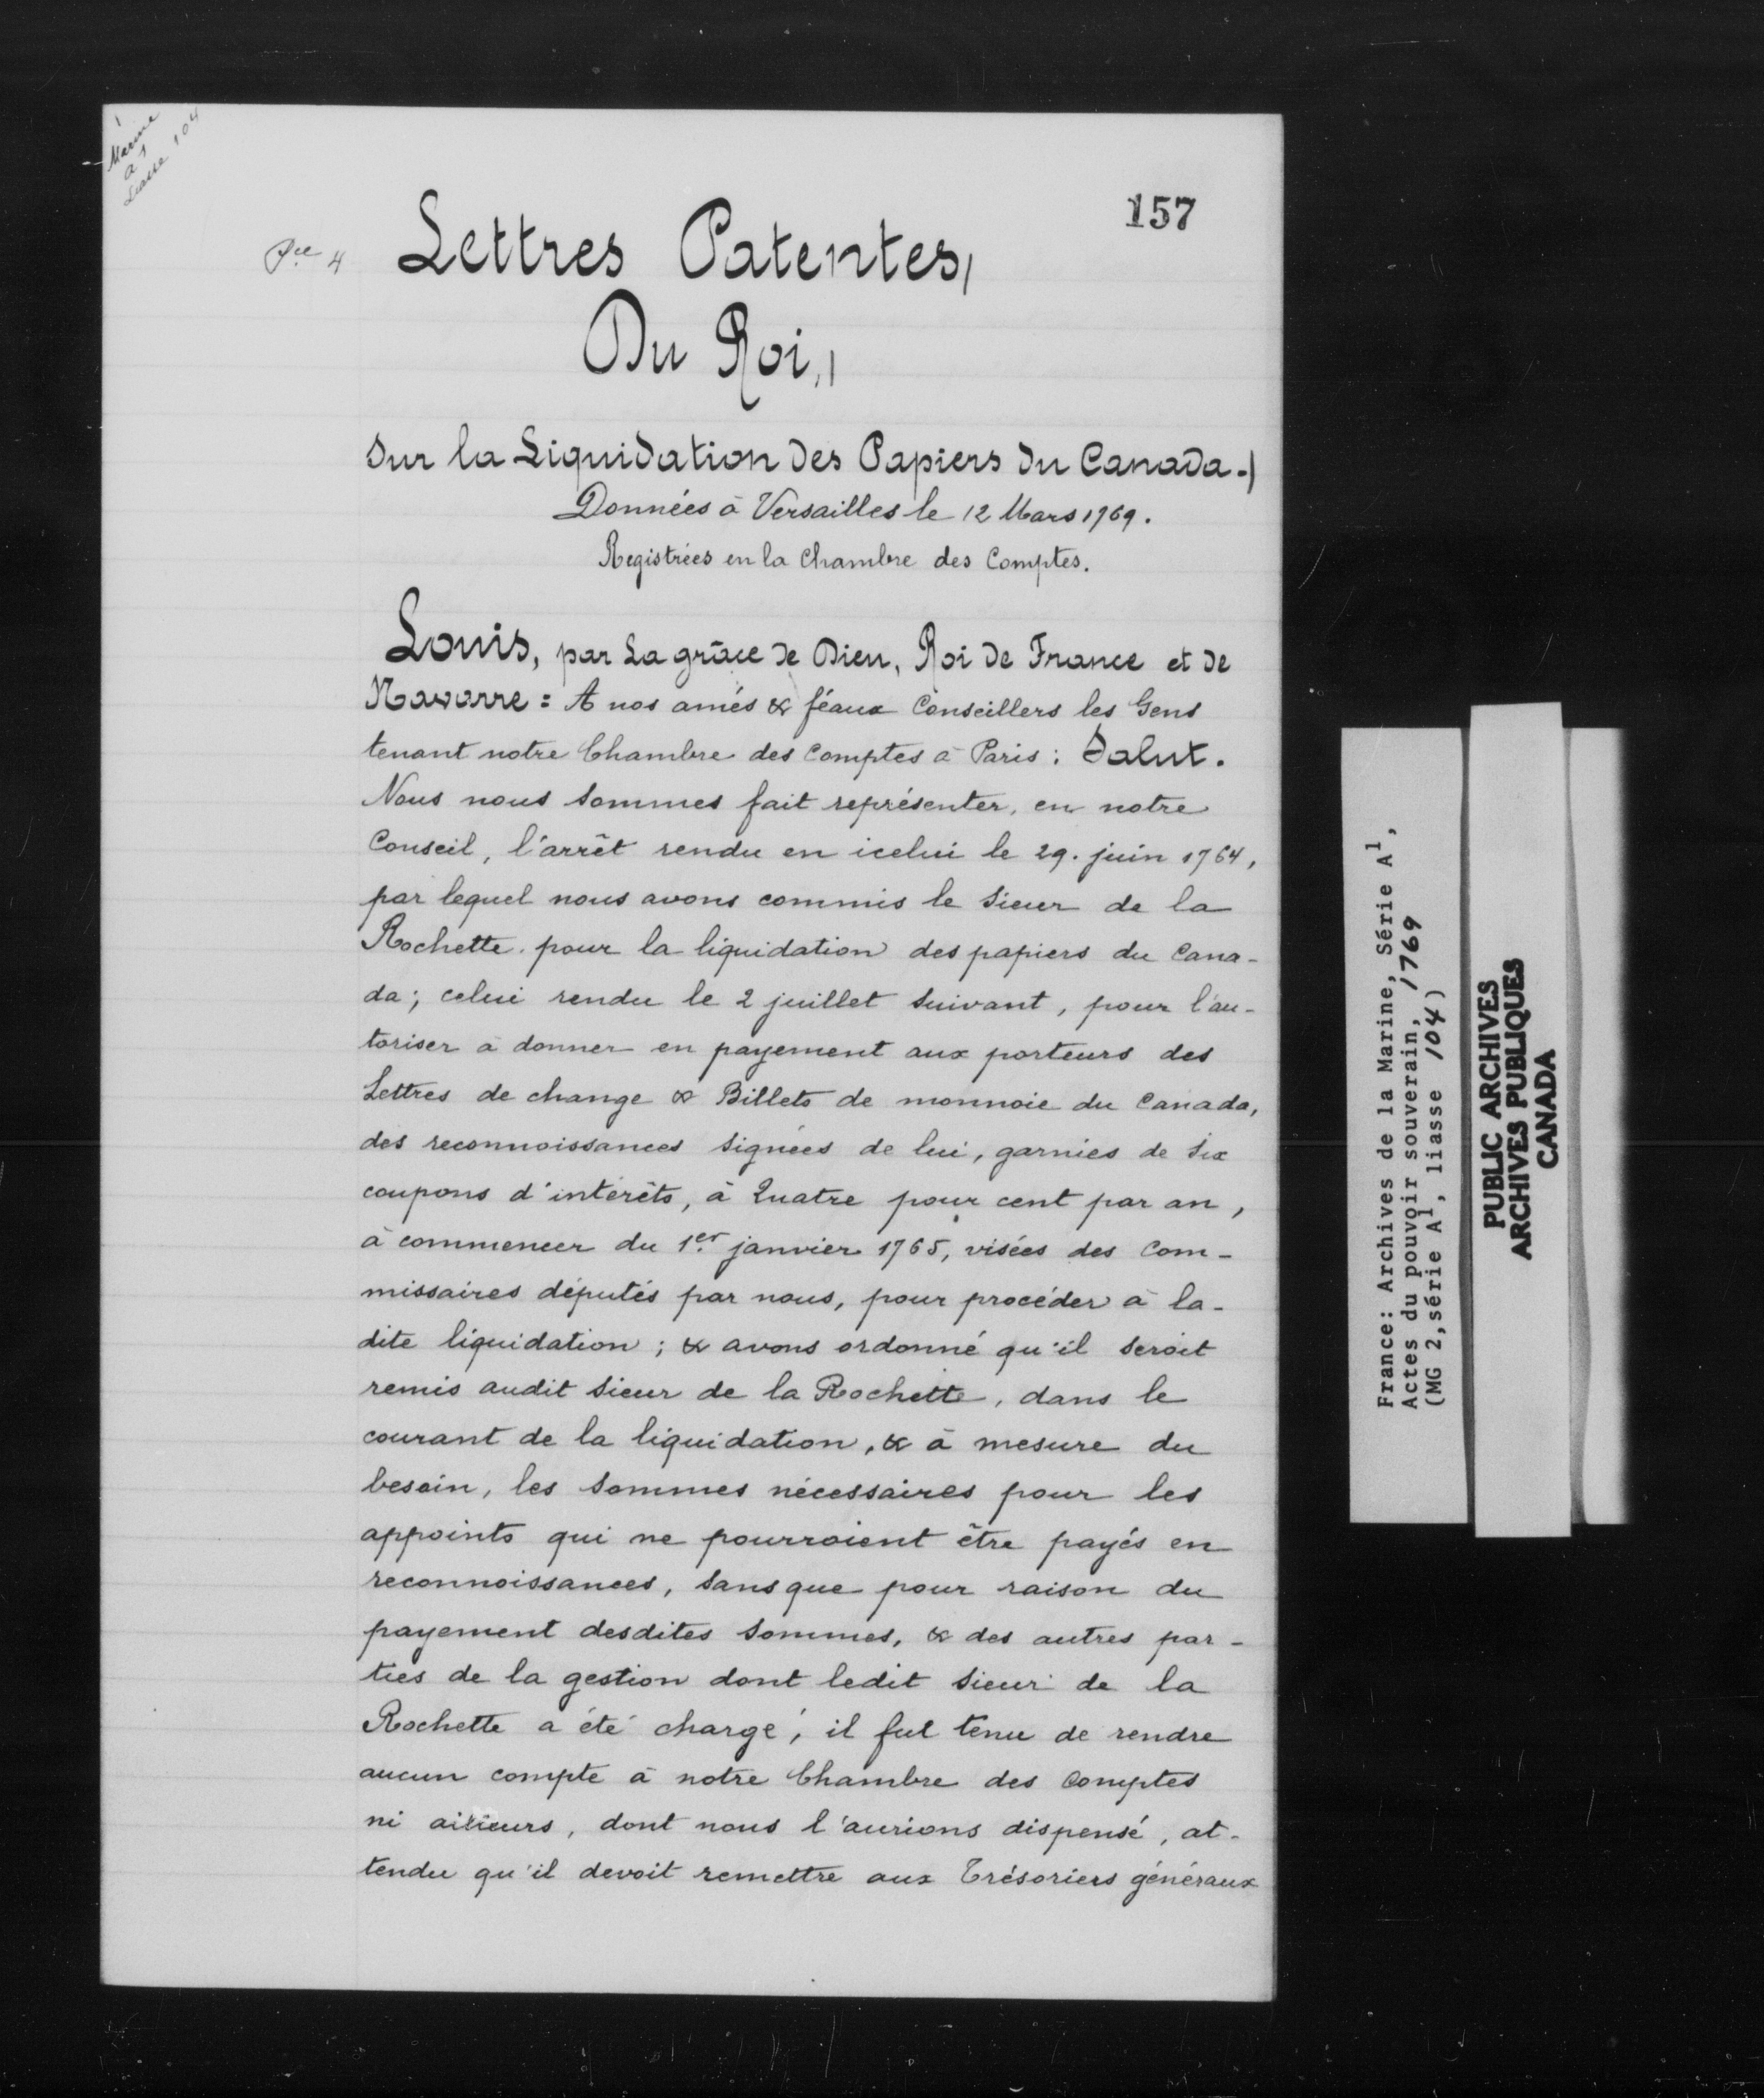 Marine
A1
Liasse 104
157
Pce 4
Lettres Patentes,
Du Roi,
Sur la Liquidation Des Papiers Du Canada.
Données à Versailles le 12 Mars 1769.
Registrées en la Chambre des Comptes.
Louis, par La grâce De Dieu, Roi De France et De
Navarre : A nos amés & féaux Conseillers les Gens
tenant notre Chambre des Comptes à Paris : Salut.
Nous nous sommes fait représenter, en notre
Conseil, l'arrêt rendu en icelui le 29. juin 1764,
par lequel nous avons commis le Sieur de la
Rochette pour la liquidation des papiers du Cana-
da ; celui rendu le 2 juillet suivant, pour l'au-
toriser à donner en payement aux porteurs des
Lettres de change & Billets de monnoie du Canada,
des reconnoissances signées de lui, garnies de six
coupons d'intérêts, à Quatre pour cent par an,
à commencer du 1er janvier 1765, visées des Com-
missaires députés par nous, pour procéder à la-
dite liquidation ; & avons ordonné qu'il seroit
remis audit Sieur de la Rochette, dans le
courant de la liquidation, & à mesure du
besoin, les sommes nécessaires pour les
appoints qui ne pourroient être payés en
reconnoissances, sans que pour raison du
payement desdites sommes, & des autres par-
ties de la gestion dont ledit Sieur de la
Rochette a été chargé, il fut tenu de rendre
aucun compte à notre Chambre des Comptes
ni ailleurs, dont nous l'aurions dispensé, at-
tendu qu'il devoit remettre aux Trésoriers généraux
France: Archives de la Marine, Série A1,
Actes du pouvoir souverain, 1769
(MG 2, série A1, liasse 104)
PUBLIC ARCHIVES
ARCHIVES PUBLIQUES
CANADA